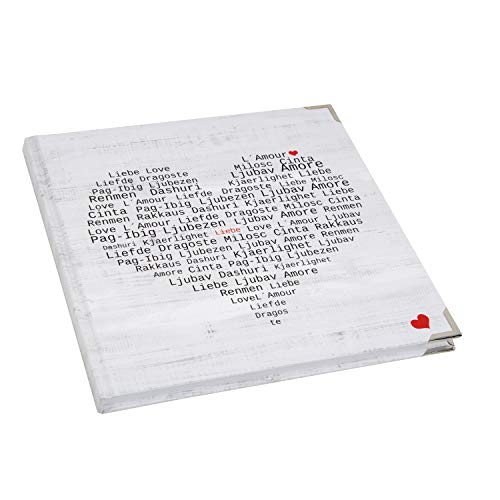 L´Amour
Liebe Love Milosc Cinta
Liefde Dragoste Ljubav Amore
Pag-Ibig Ljubezen Kjaerlighet Liebe
Renmen Dashuri Liefde Dragoste Liebe Milosc
Love L´Amour Liefde Dragoste Ljubav Amore
Cinta Pag-Ibig Ljubezen Love L´Amour Milosc Cinta
Renmen Rakkaus Dashuri Liefde Dragoste Renmen
Love L´Amour Liefde Dragoste Ljubav Amore Renmen
Pag-Ibig Ljubezen Liebe Love L´Amour Ljubav
Dashuri Kjaerlighet Milosc Cinta Rakkaus
Liefde Dragoste Ljubav Amore Renmen
Cinta Pag-Ibig Ljubezen
Rakkaus Dashuri Kjaerlighet
Amore Cinta Pag-Ibig Ljubezen
Ljubav Dashuri Kjaerlighet
Ljubav Amore
Renmen Liebe
LoveL´Amour
Liefde
Dragos
te